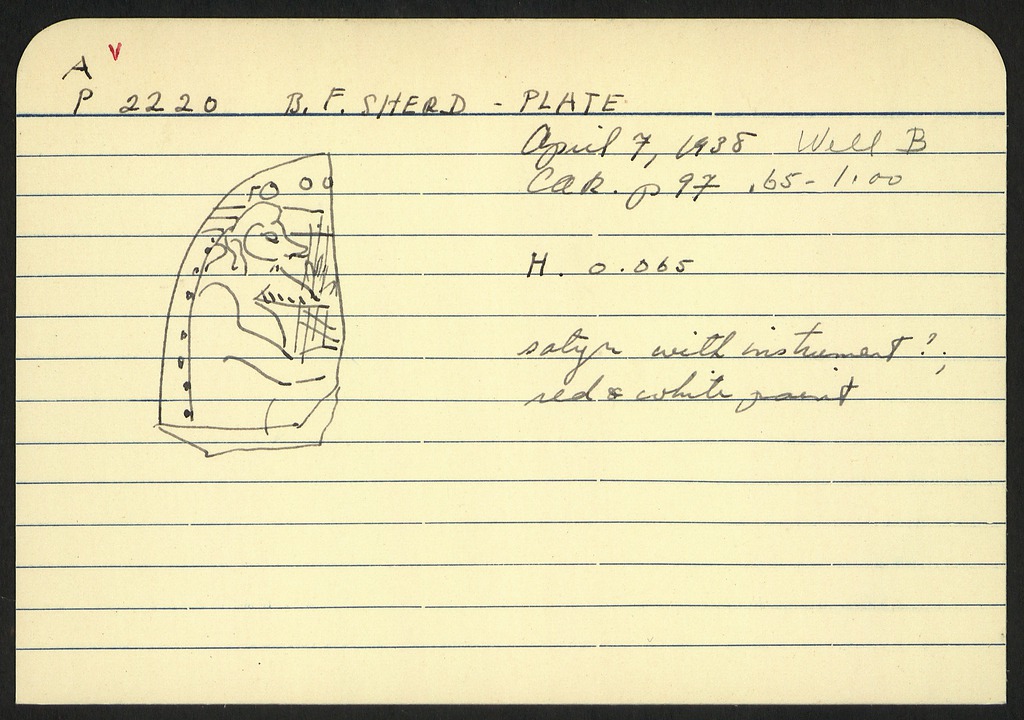 A v
P 2220 B. F. SHERD - PLATE
April 7, 1938 Well B
Car. p 97 .65 - 1.00
H. 0.065
satyr with instrument?;
red & white paint
ΓΟ ΟΟ